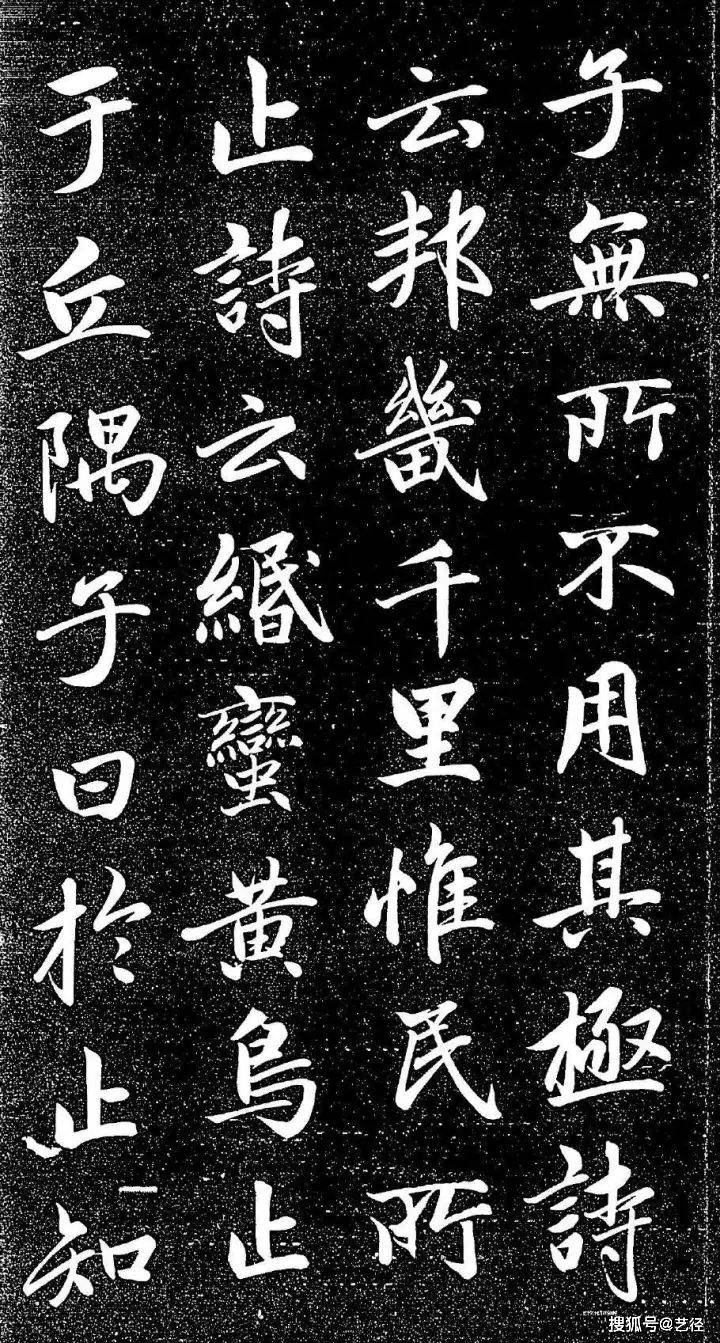 子無所不用其極詩
云邦畿千里惟民所
止詩云緡蠻黃鳥止
于丘隅子曰於止知
搜狐号@艺径